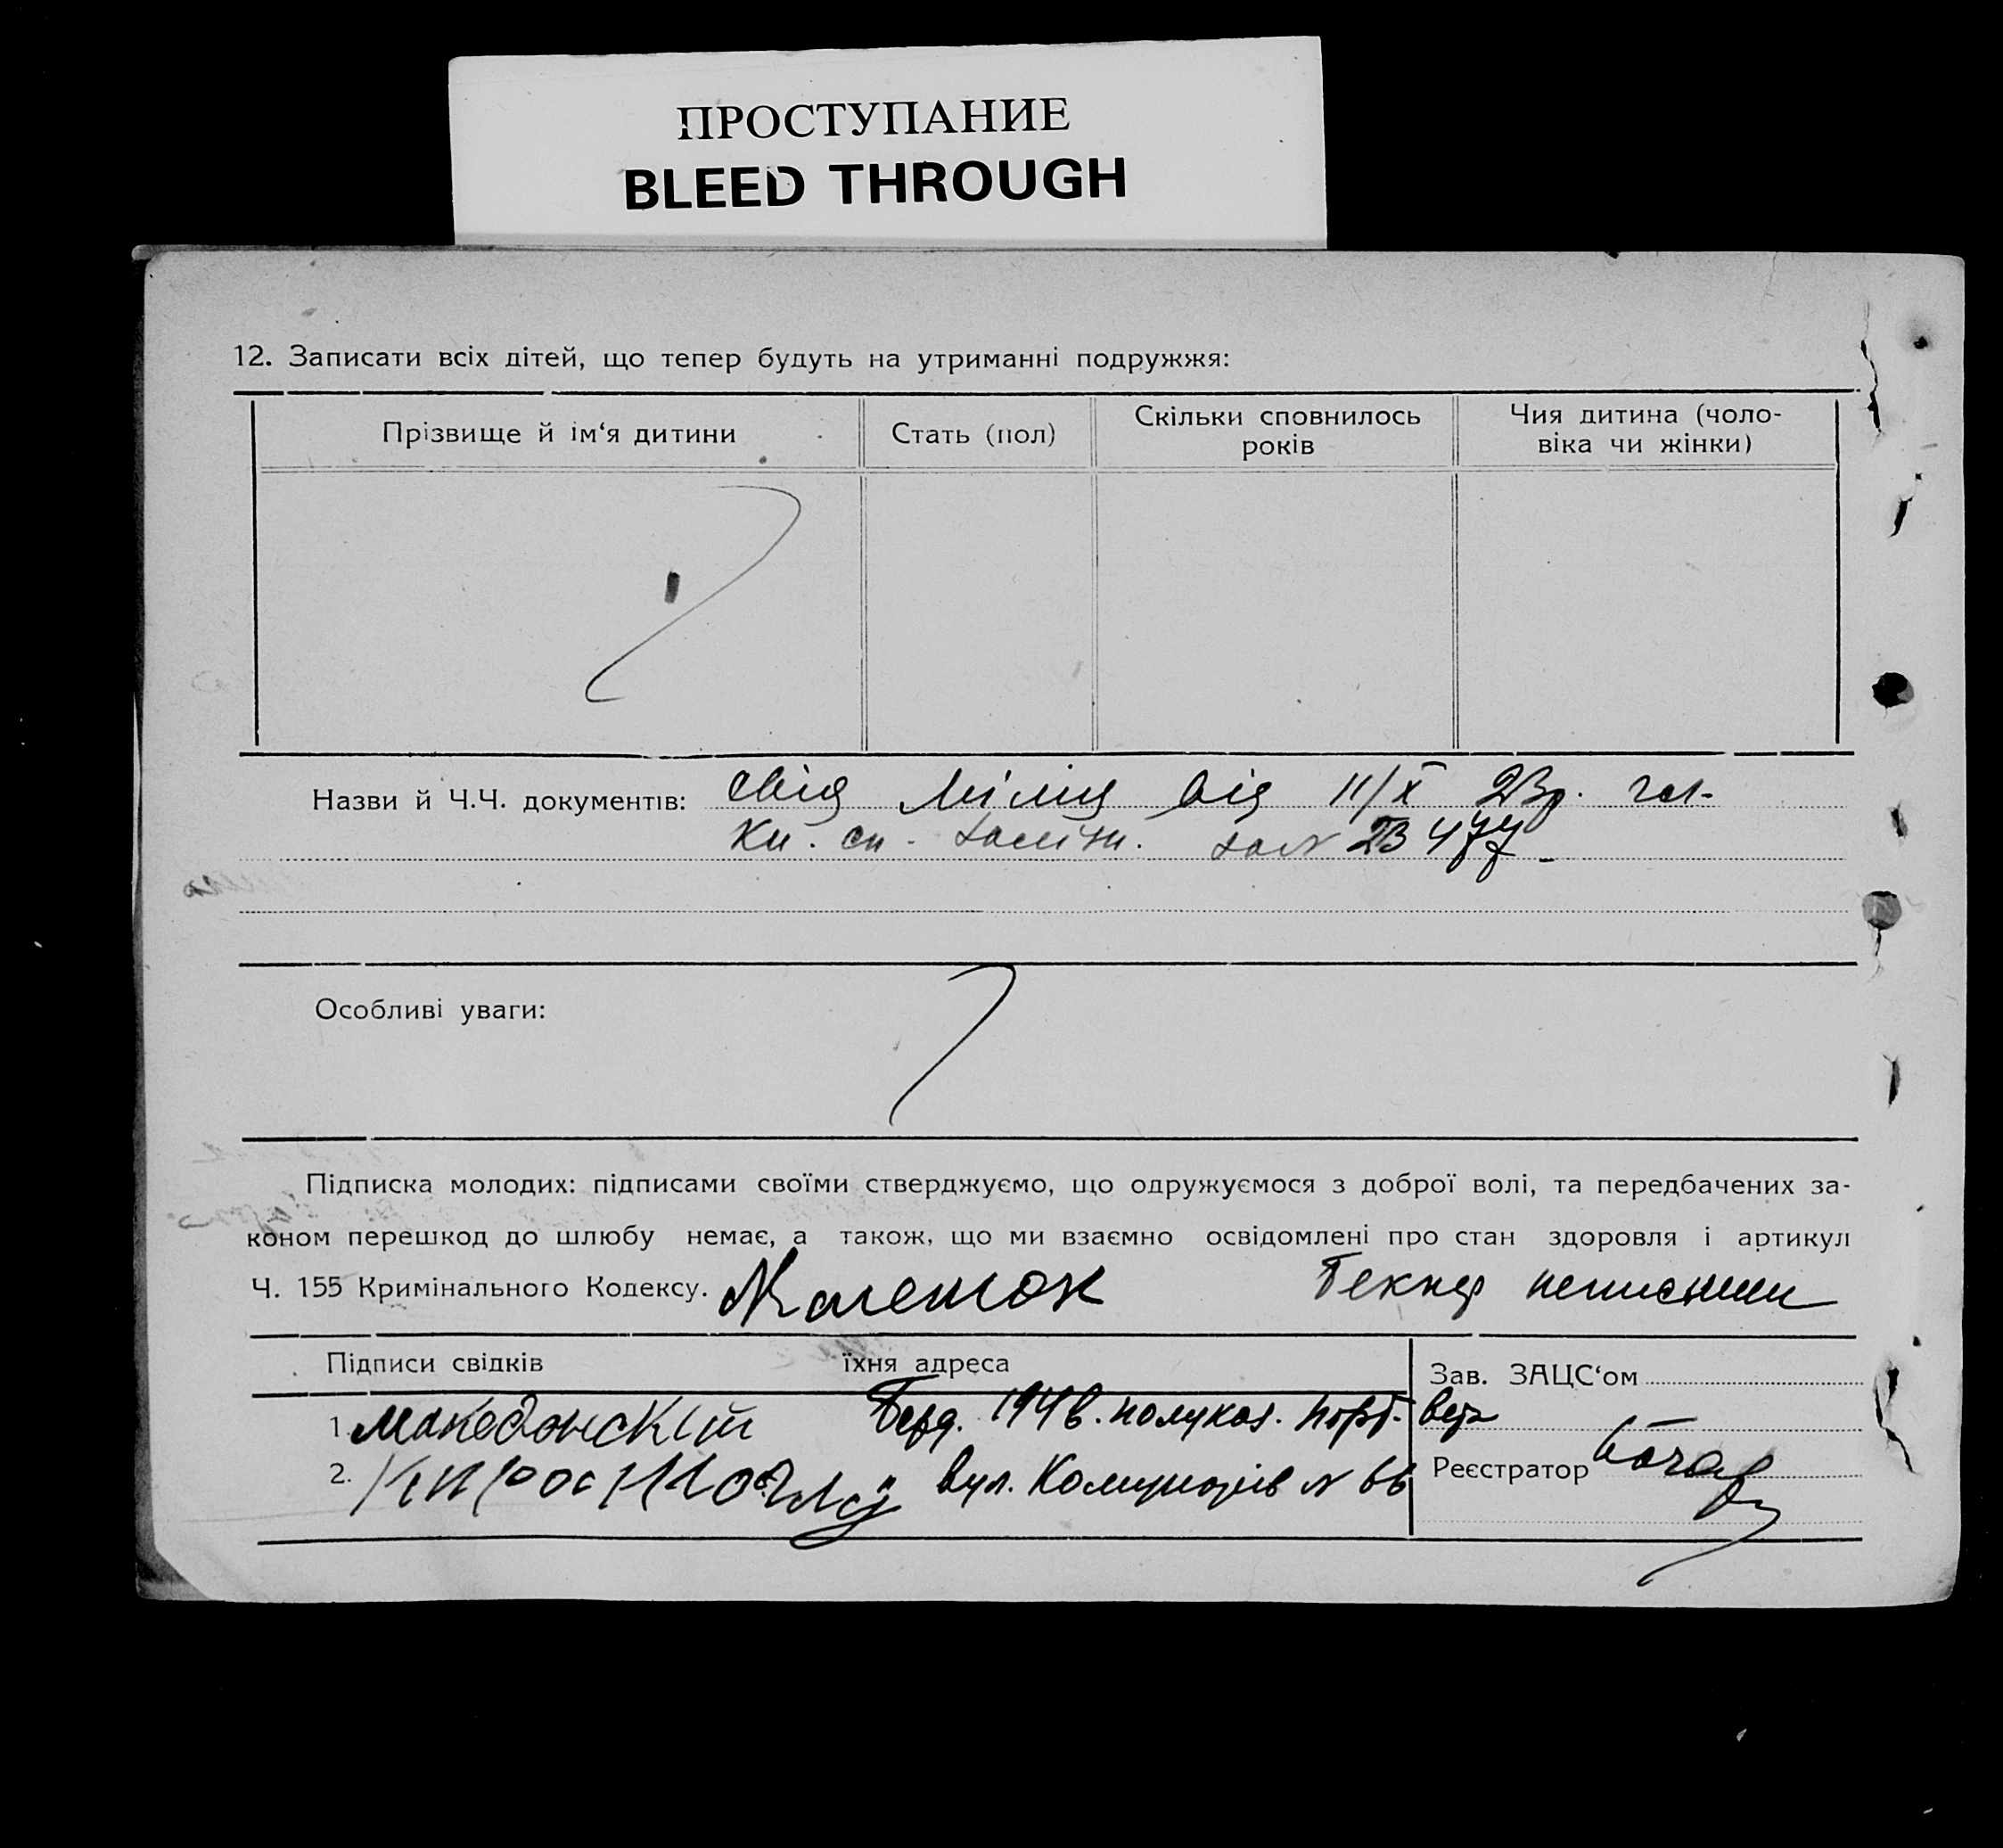 ПРОСТУПАНИЕ
BLEED THROUGH
12. Записати всіх дітей, що тепер будуть на утриманні подружжя:
Прізвище й ім‘я дитини
Стать (пол)
Скільки сповнилось
років
Чия дитина (чоло-
віка чи жінки)
Назви й Ч.Ч. документів: від 11/X
Кн. сп. 477
Особливі уваги:
Підписка молодих: підписами своїми стверджуємо, що одружуємося з доброї волі, та передбачених за-
коном перешкод до шлюбу немає, а також, що ми взаємно освідомлені про стан здоровля і артикул
Ч. 155 Кримінального Кодексу.
Підписи свідків
їхня адреса
Зав. ЗАЦС‘ом
1. Македонскій Берд. 194 в.
2. вул. Комунарів N 66
Реєстратор